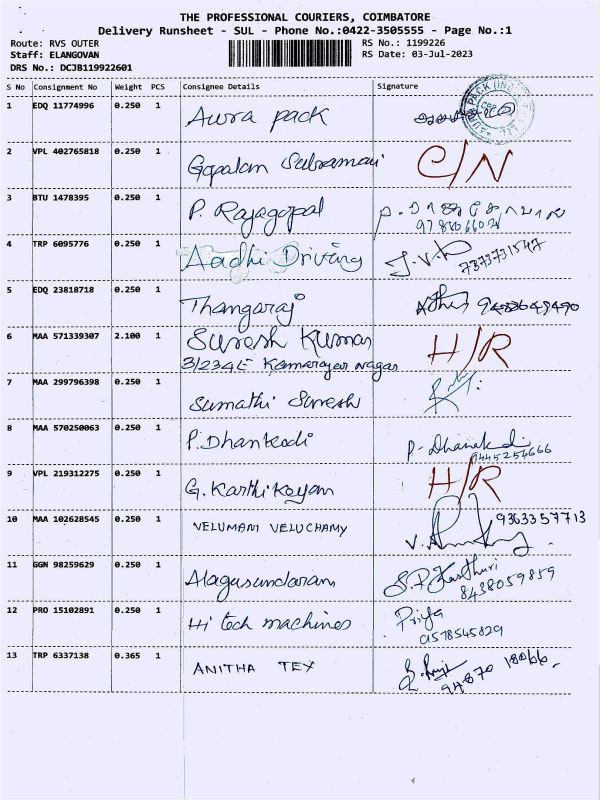 THE PROFESSIONAL COURIERS, COIMBATORE
Delivery Runsheet - SUL - Phone No.:0422-3505555 - Page No.:1
Route: RVS OUTER RS No.: 1199226
Staff: ELANGOVAN RS Date: 03-Jul-2023
DRS No.: DCJB119922601
S No Consignment No Weight PCS Consignee Details Signature
1 EDQ 11774996 0.250 1 Aura pack
2 VPL 402765818 0.250 1 Gopalan Subramani C/N
3 BTU 1478395 0.250 1 P. Rajagopal
4 TRP 6095776 0.250 1 Aadhi Driving J.V. 7373731547
5 EDQ 23818718 0.250 1 Thangaraj
6 MAA 571339307 2.100 1 Suresh Kumar H/R
3/234E Kamarajar nagar
7 MAA 299796398 0.250 1 Sumathi Suresh
8 MAA 570250063 0.250 1 P. Dhankodi P. Dhanakodi
9445254666
9 VPL 219312275 0.250 1 G. Karthikeyan H/R
10 MAA 102628545 0.250 1 VELUMANI VELUCHAMY 9363357713
11 GGN 98259629 0.250 1 Alagusundaram S.P. Kasthuri
8438059859
12 PRO 15102891 0.250 1 Hi tech machines Priya
9578545829
13 TRP 6337138 0.365 1 ANITHA TEX
94870 18066